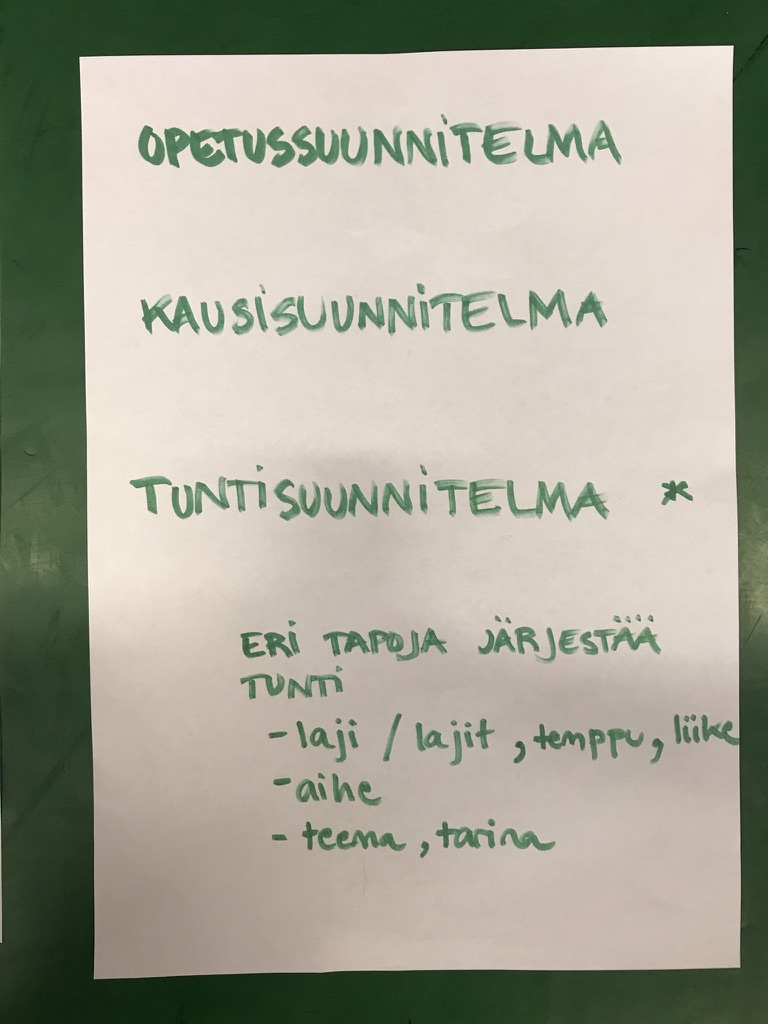 OPETUSSUUNNITELMA
KAUSISUUNNITELMA
TUNTISUUNNITELMA *
ERI TAPOJA JÄRJESTÄÄ
TUNTI
- laji / lajit, temppu, liike
- aihe
- teema, tarina